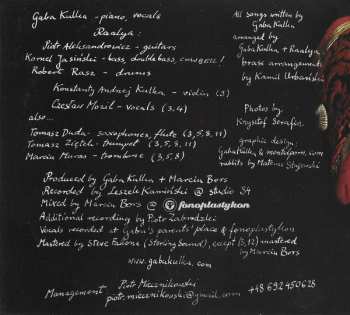 Gaba Kulka - piano, vocals
Raalya:
Piotr Aleksandrowicz - guitars
Kornel Jasiński - bass, double bass, COWBELL!
Robert Rasz - drums
Konstanty Andrzej Kulka - violin (3)
Czesław Mozil - vocals (3,4)
also...
Tomasz Duda - saxophones, flute (3,5,8,11)
Tomasz Ziętek - trumpet (3,5,8,11)
Marcin Muras - trombone (3,5,8)
Produced by Gaba Kulka + Marcin Bors
Recorded by Leszek Kamiński @ studio S4
Mixed by Marcin Bors @ fonoplastykon
Additional recording by Piotr Zabrodzki
Vocals recorded at Gaba's parents' place & fonoplastykon
Mastered by Steve Fallone (Sterling Sound), except (3,12) mastered
by Marcin Bors
www.gabakulka.com
Management
Piotr Miecznikowski
piotr.miecznikowski@gmail.com
+48 692 450628
All songs written by
Gaba Kulka
arranged by
Gaba Kulka + Raalya
brass arrangements
by Kamil Urbański
Photos by:
Krzysztof Serafin
graphic design:
Gaba Kulka &
rabbits by Mateusz